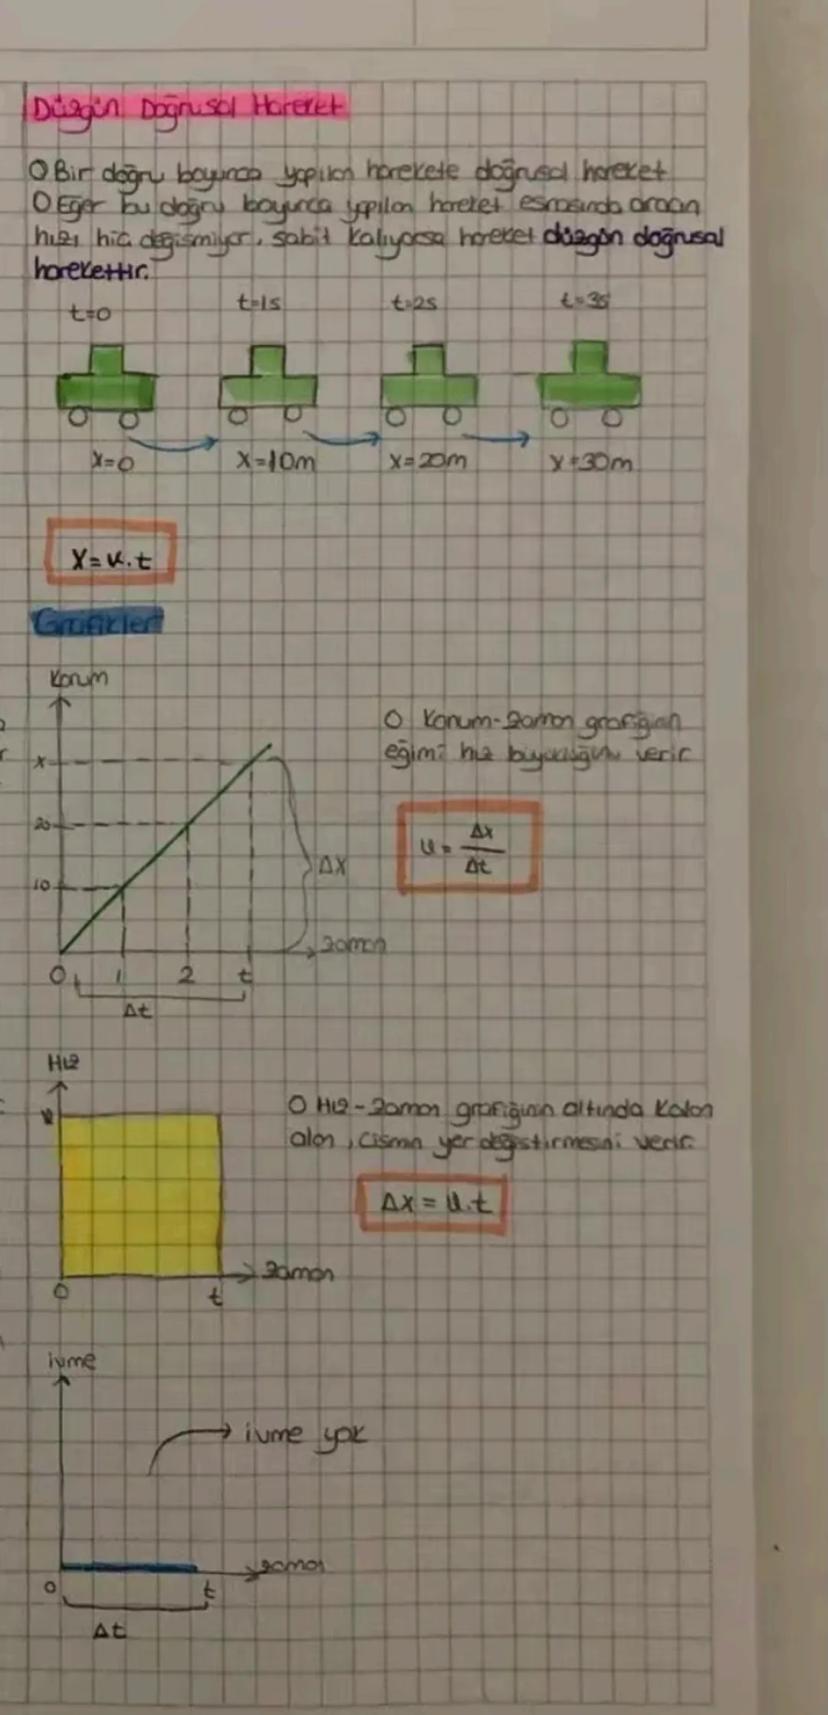 Düzgün Doğrusal Hareket
O Bir doğru boyunca yapılan harekete doğrusal hareket
O Eğer bu doğru boyunca yapılan hareket esnasında aracın
hızı hiç değişmiyor, sabit kalıyorsa hareket düzgün doğrusal
harekettir.
t=0 t=1s t=2s t=3s
x=0 x=10m x=20m x=30m
X=v.t
Grafikler
Konum
O Konum-Zaman grafiğinin
eğimi hız büyüklüğünü verir
x
20
v = Δx/Δt
ΔX
10
zaman
0 1 2 t
Δt
Hız
O Hız-Zaman grafiğinin altında kalan
alan, cismin yer değiştirmesini verir.
v
Δx = v.t
zaman
0 t
ivme
ivme yok
zaman
0 t
Δt